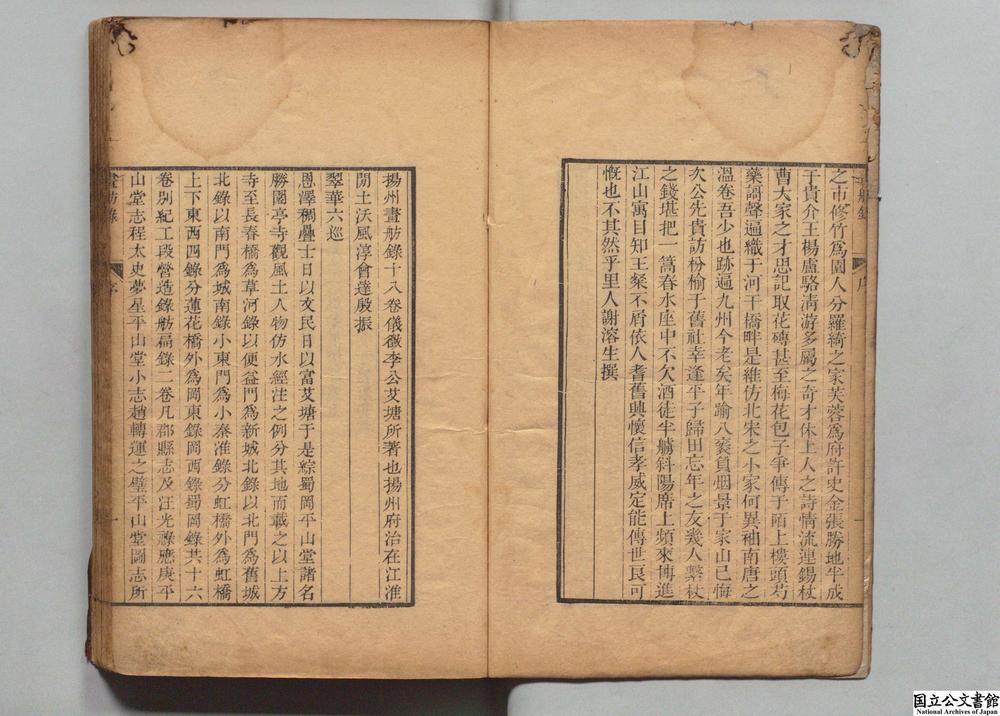 之市修竹為園人分羅綺之家芙蓉為府許史金張勝地半成
于貴介王楊盧駱清游多屬之奇才休上人之詩情流連錫杖
曹大家之才思記取花磚甚至梅花包子爭傳于陌上樓頭芍
藥謌聲遍織于河干橋畔是維仿北宋之小家何異袖南唐之
溫卷吾少也跡遍九州今老矣年踰八袠負烟景于家山已悔
次公先貴訪枌榆于舊社幸逢平子歸田忘年之友幾人繫杖
之錢堪把一篙春水座中不欠酒徒半艣斜陽席上頻來博進
江山寓目知王粲不屑依人耆舊興懷信孝威定能傳世良可
慨也不其然乎里人謝溶生撰
序
揚州畫舫錄十八卷儀徵李公艾塘所著也揚州府治在江淮
閒土沃風淳會達殷振
翠華六巡
恩澤稠疊士日以文民日以富艾塘于是綜蜀岡平山堂諸名
勝園亭寺觀風土人物仿水經注之例分其地而載之以上方
寺至長春橋為草河錄以便益門為新城北錄以北門為舊城
北錄以南門為城南錄小東門為小秦淮錄分虹橋外為虹橋
上下東西四錄分蓮花橋外為岡東錄岡西錄蜀岡錄共十六
卷別紀工段營造錄舫扁錄二卷凡郡縣志及汪光祿應庚平
山堂志程太史夢星平山堂小志趙轉運之璧平山堂圖志所
畫舫錄
序
一
国立公文書館
National Archives of Japan